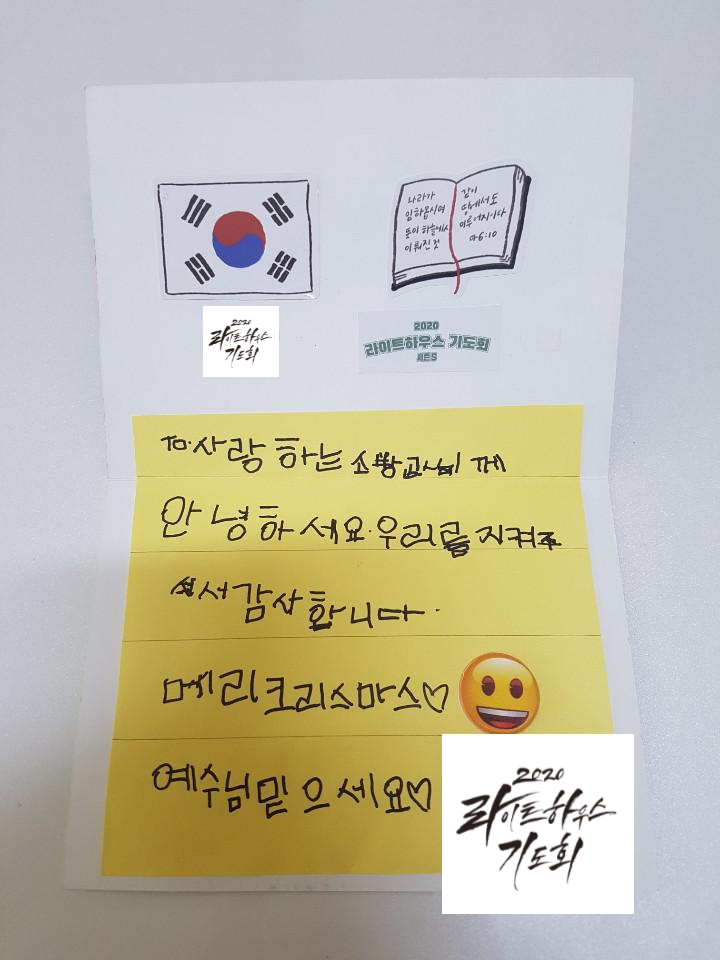 나라가
임하옵시며
뜻이 하늘에서
이뤄진 것
같이
땅에서도
이루어지이다
마6:10
2020
라이트하우스
기도회
2020
라이트하우스 기도회
시즌5
TO.사랑하는 께
안녕하세요.우리를 지켜주
셔서감사합니다.
메리크리스마스♡
예수님믿으세요♡
2020
라이트하우스
기도회